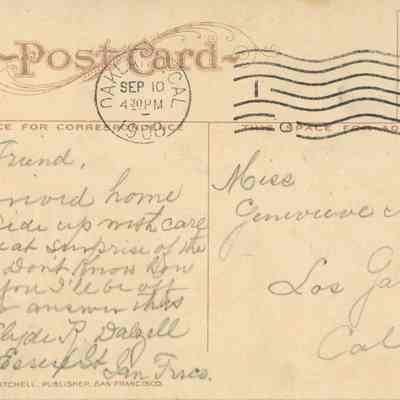 Post Card
OAKLAND, CAL
SEP 10
4 30 PM
1908
CE FOR CORRESPONDENCE
THIS SPACE FOR AD
Friend,
home
side up with care
at surprise of the
Don't Know how
you I'll be off
answer this
Clyde R. Dalzell
Essex St. San Frisc.
Miss
Genevieve
Los Ga
Cal
ITCHELL, PUBLISHER, SAN FRANCISCO.